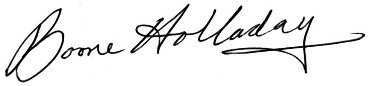 Boone Holladay